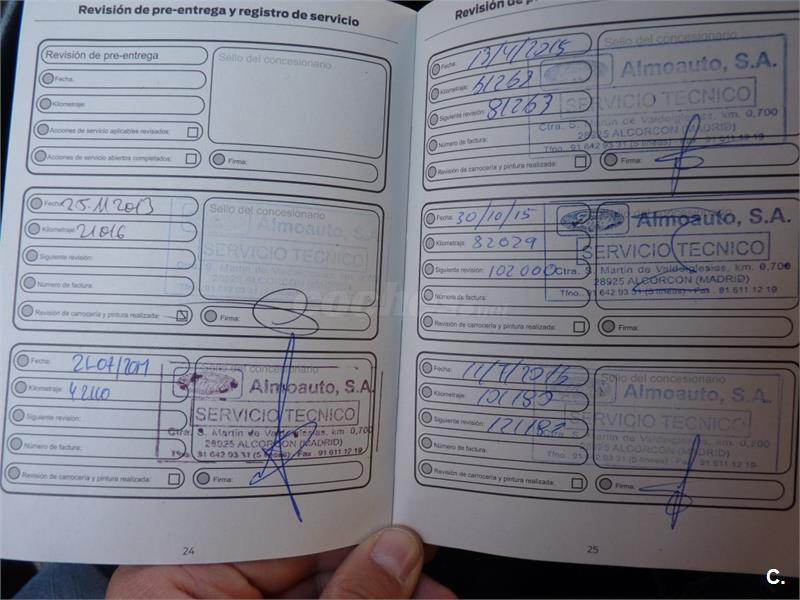 Revisión de pre-entrega y registro de servicio
Revisión de pre-entrega
Fecha:
Kilometraje:
Acciones de servicio aplicables revisados:
Acciones de servicio abiertos completados:
Sello del concesionario
Firma:
Fecha: 25.11.2013
Kilometraje: 21016
Siguiente revisión:
Número de factura:
Revisión de carrocería y pintura realizada:
Sello del concesionario
SERVICIO TECNICO
Firma:
Fecha:
Kilometraje:
Siguiente revisión:
Número de factura:
Revisión de carrocería y pintura realizada:
Sello del concesionario
Almoauto, S.A.
SERVICIO TECNICO
Ctra. S. Martin de Valdeiglesias, km. 0,700
28925 ALCORCON (MADRID)
Tfno. 91 642 93 31 (5 lineas) - Fax. 91 611 12 19
Firma:
24
Revisión de
Fecha: 13/4/2015
Kilometraje: 61263
Siguiente revisión: 81263
Número de factura:
Revisión de carrocería y pintura realizada:
Sello del concesionario
Almoauto, S.A.
SERVICIO TECNICO
Ctra. S. Martin de Valdeiglesias, km. 0,700
28925 ALCORCON (MADRID)
Tfno. 91 642 93 31 (5 lineas) 91 611 12 19
Firma:
Fecha: 30/10/15
Kilometraje: 82029
Siguiente revisión: 102000
Número de factura:
Revisión de carrocería y pintura realizada:
Almoauto, S.A.
SERVICIO TECNICO
Ctra. S. Martin de Valdeiglesias, km. 0,700
28925 ALCORCON (MADRID)
Tfno. 91 642 93 31 (5 lineas) - Fax. 91 611 12 19
Firma:
Fecha:
Kilometraje:
Siguiente revisión:
Número de factura:
Revisión de carrocería y pintura realizada:
Sello del concesionario
Almoauto, S.A.
SERVICIO TECNICO
Ctra. S. Martin de Valdeiglesias, km. 0,700
28925 ALCORCON (MADRID)
Firma:
25
C.